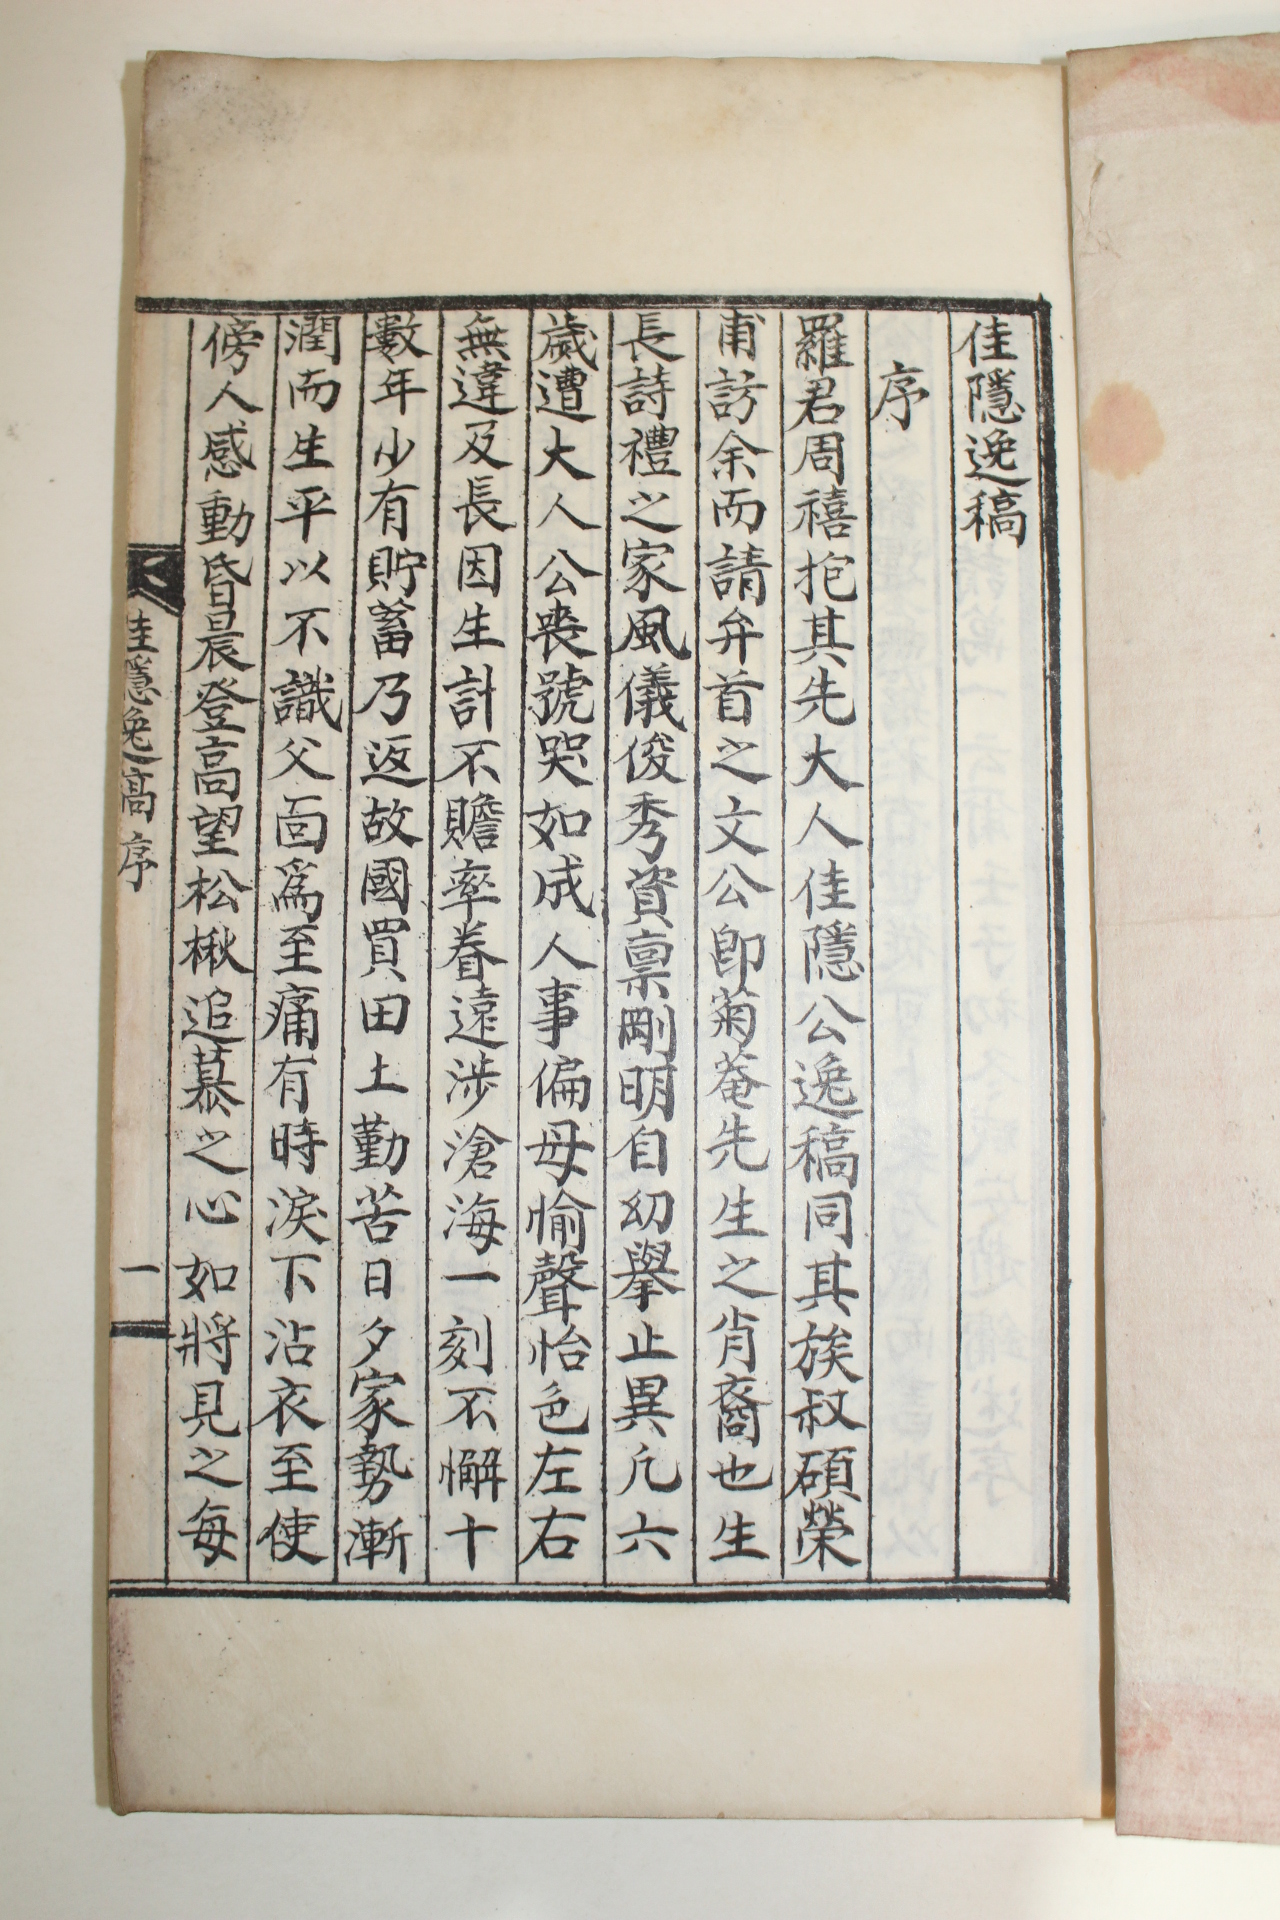 佳隱逸稿
序
羅君周禧抱其先大人佳隱公逸稿同其族叔碩榮
甫訪余而請弁首之文公卽菊菴先生之肖裔也生
長詩禮之家風儀俊秀資禀剛明自幼擧止異凡六
歲遭大人公喪號哭如成人事偏母愉聲怡色左右
無違及長因生計不贍率眷遠涉滄海一刻不懈十
數年少有貯蓄乃返故國買田土勤苦日夕家勢漸
潤而生平以不識父面爲至痛有時淚下沾衣至使
傍人感動昏晨登高望松楸追慕之心如將見之每
佳隱逸稿序
一